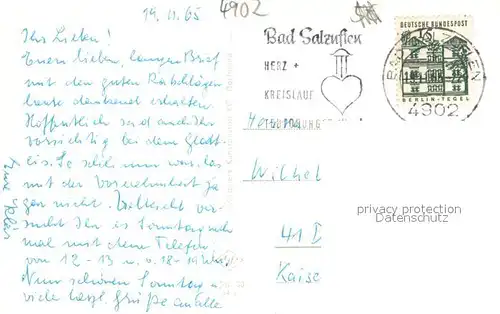 19.11.65
4902
Ihr Lieben!
Euern lieben, langen Brief
mit den guten Ratschlägen
heute dankend erhalten.
Hoffentlich seid auch Ihr
vorsichtig bei dem Glatt-
eis. So schlimm war das
mit der Vornehmheit ja
gar nicht. Vielleicht ver-
sucht Ihr es Sonntag noch
mal mit dem Telefon
von 12 - 13 u. v. 18 - 19 Uhr
Nun schönen Sonntag u.
viele herzl. Grüße an alle
Eure
Bad Salzuflen
HERZ +
KREISLAUF
DEUTSCHE BUNDESPOST
15
BERLIN-TEGEL
BAD SALZUFLEN
4902
Wilhel
41 I
Kaise
privacy protection
Datenschutz